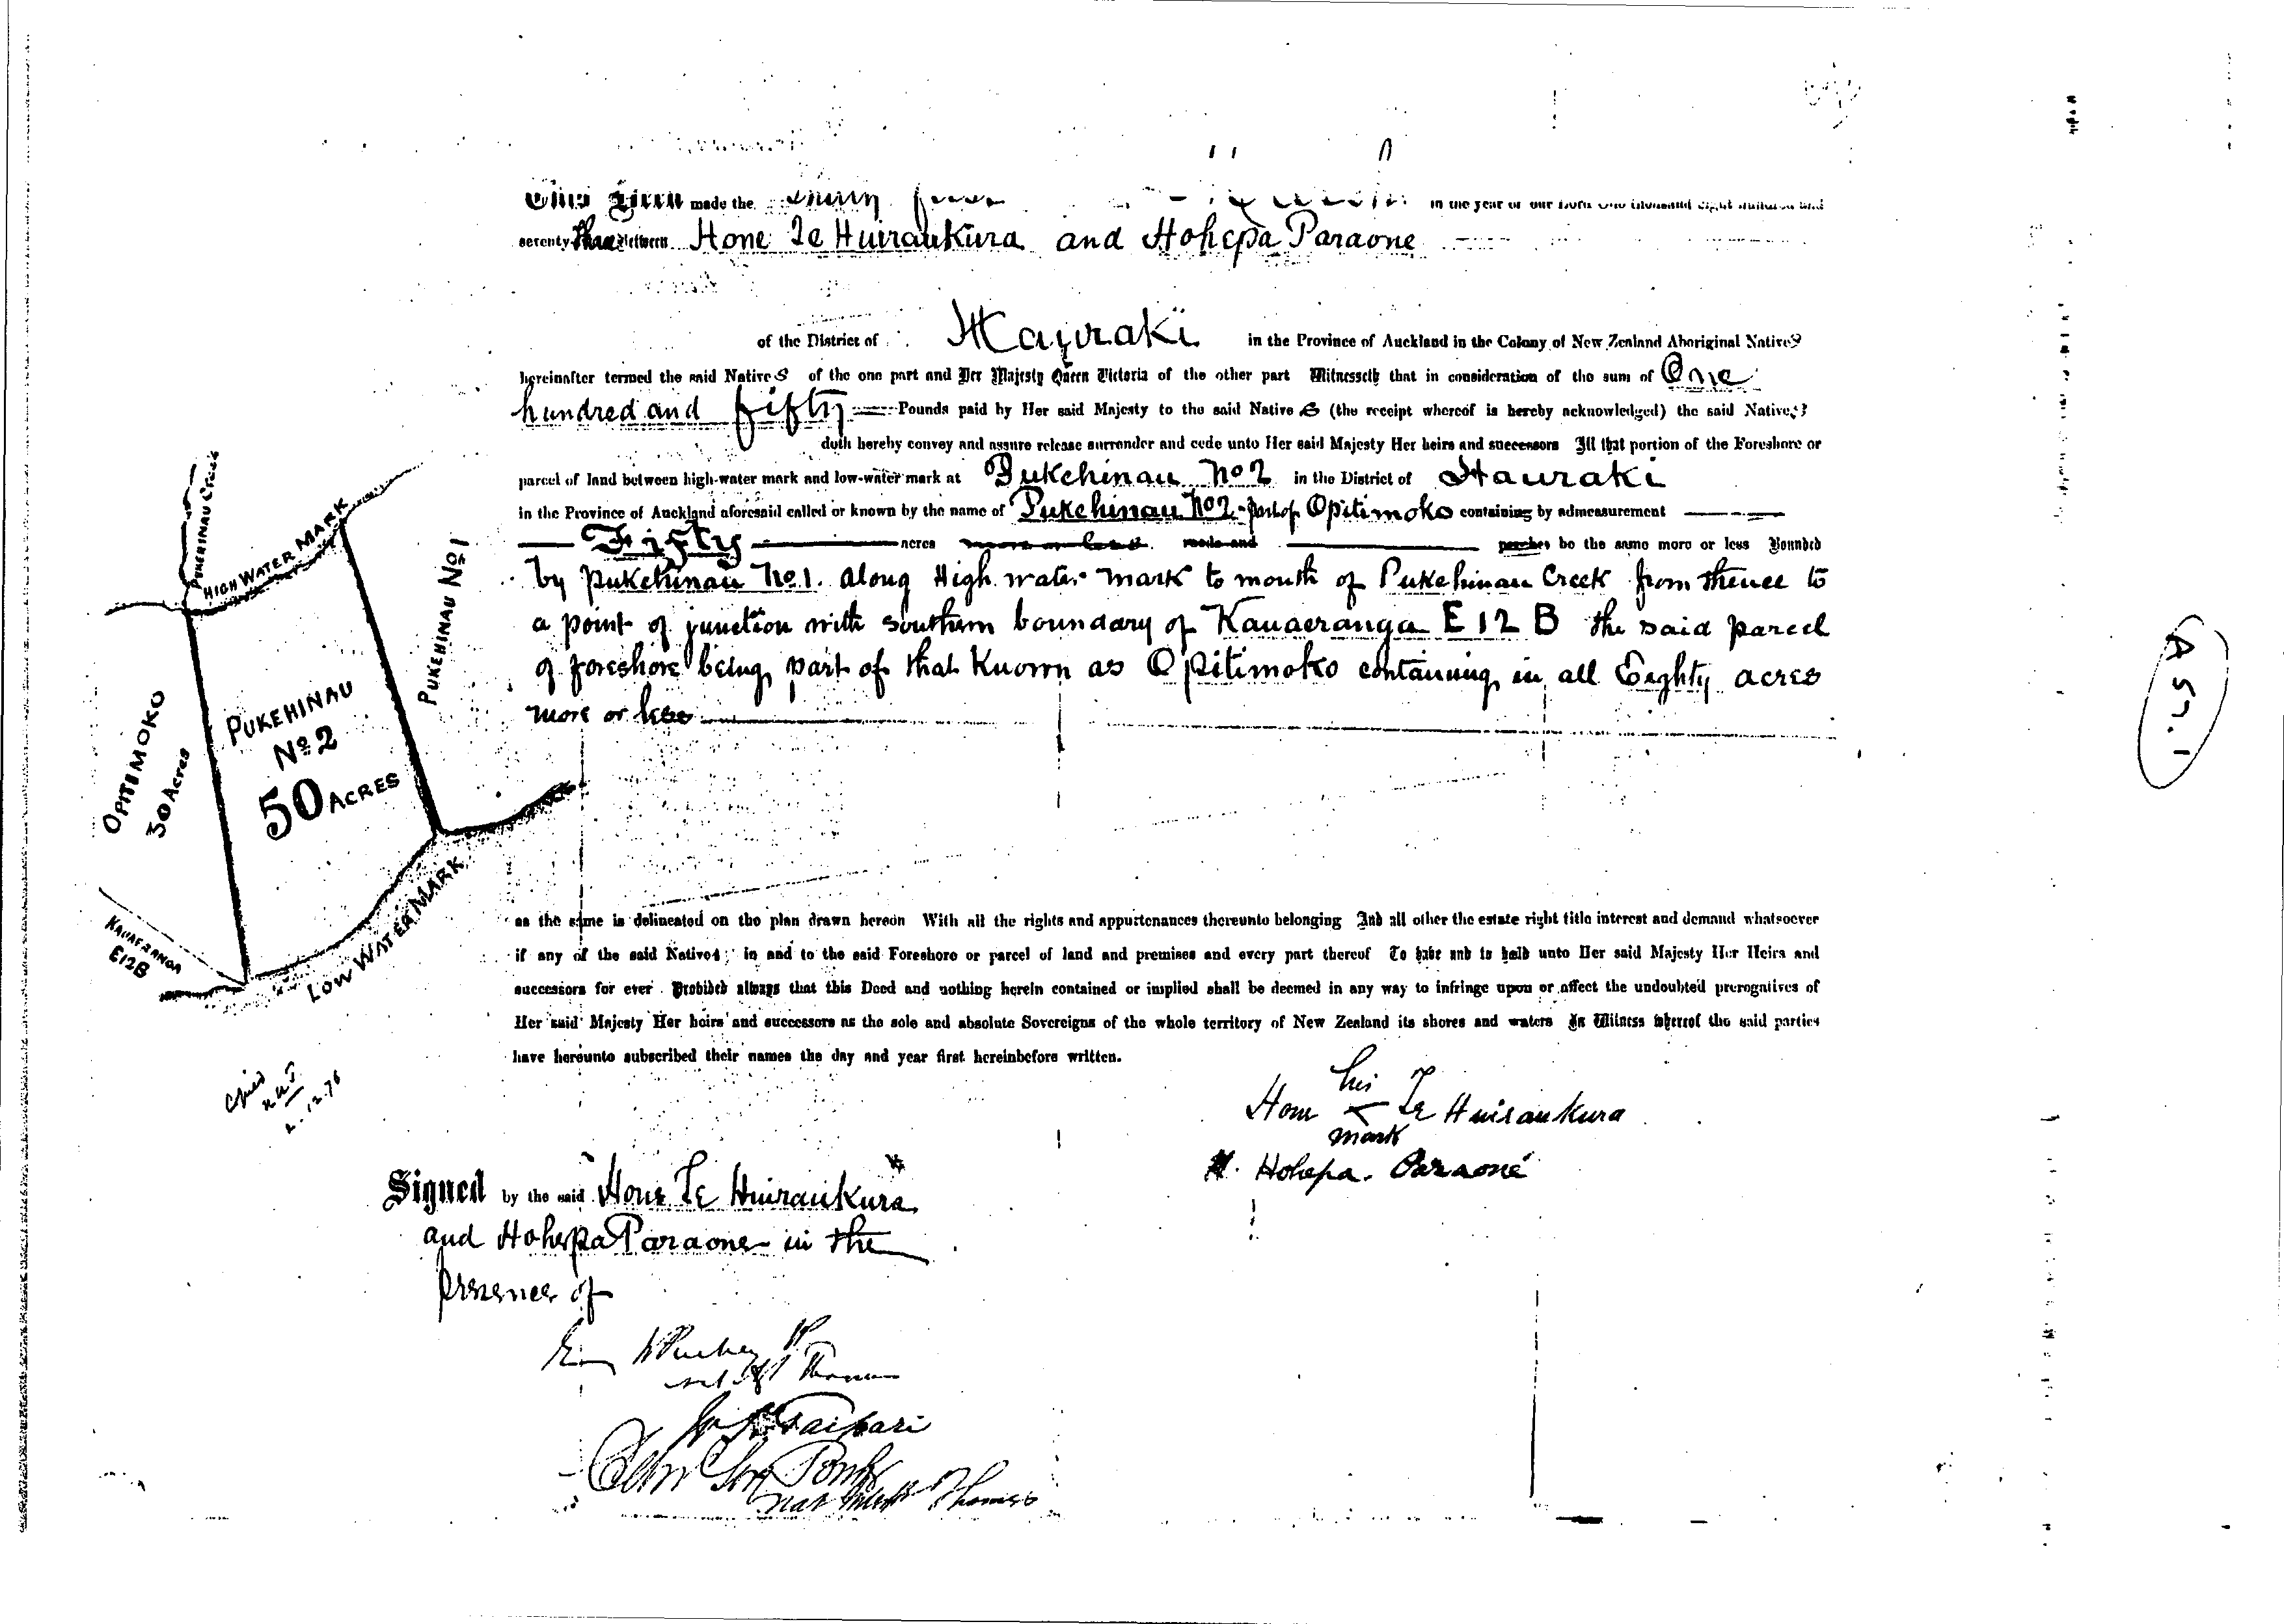 This Deed made the in the year of our Lord one thousand eight hundred and
seventy three between Hone Te Huiraukura and Hohepa Paraone
of the District of Hauraki in the Province of Auckland in the Colony of New Zealand Aboriginal Natives
hereinafter termed the said Natives of the one part and Her Majesty Queen Victoria of the other part Witnesseth that in consideration of the sum of One
hundred and fifty Pounds paid by Her said Majesty to the said Natives (the receipt whereof is hereby acknowledged) the said Natives
doth hereby convey and assure release surrender and cede unto Her said Majesty Her heirs and successors All that portion of the Foreshore or
parcel of land between high-water mark and low-water mark at Pukehinau No 2 in the District of Hauraki
in the Province of Auckland aforesaid called or known by the name of Pukehinau No 2 - part of Opitimoko containing by admeasurement
Fifty acres more or less. roods and perches be the same more or less Bounded
by Pukehinau No 1. along High water mark to mouth of Pukehinau Creek from thence to
a point of junction with southern boundary of Kauaeranga E 12 B the said parcel
of foreshore being part of that known as Opitimoko containing in all Eighty acres
more or less
PUKEHINAU CREEK
HIGH WATER MARK
PUKEHINAU No 1
PUKEHINAU
No 2
50 ACRES
OPITIMOKO
30 Acres
KAUAERANGA
E12B
LOW WATER MARK
as the same is delineated on the plan drawn hereon With all the rights and appurtenances thereunto belonging And all other the estate right title interest and demand whatsoever
if any of the said Natives in and to the said Foreshore or parcel of land and premises and every part thereof To have and to hold unto Her said Majesty Her Heirs and
successors for ever. Provided always that this Deed and nothing herein contained or implied shall be deemed in any way to infringe upon or affect the undoubted prerogatives of
Her said Majesty Her heirs and successors as the sole and absolute Sovereigns of the whole territory of New Zealand its shores and waters In Witness whereof the said parties
have hereunto subscribed their names the day and year first hereinbefore written.
Copied
12.76
his
Hone x Te Huiraukura
mark
Hohepa. Paraone
Signed by the said Hone Te Huiraukura
and Hohepa Paraone in the
presence of
Puckey
Taipari
Thames
A 57.1